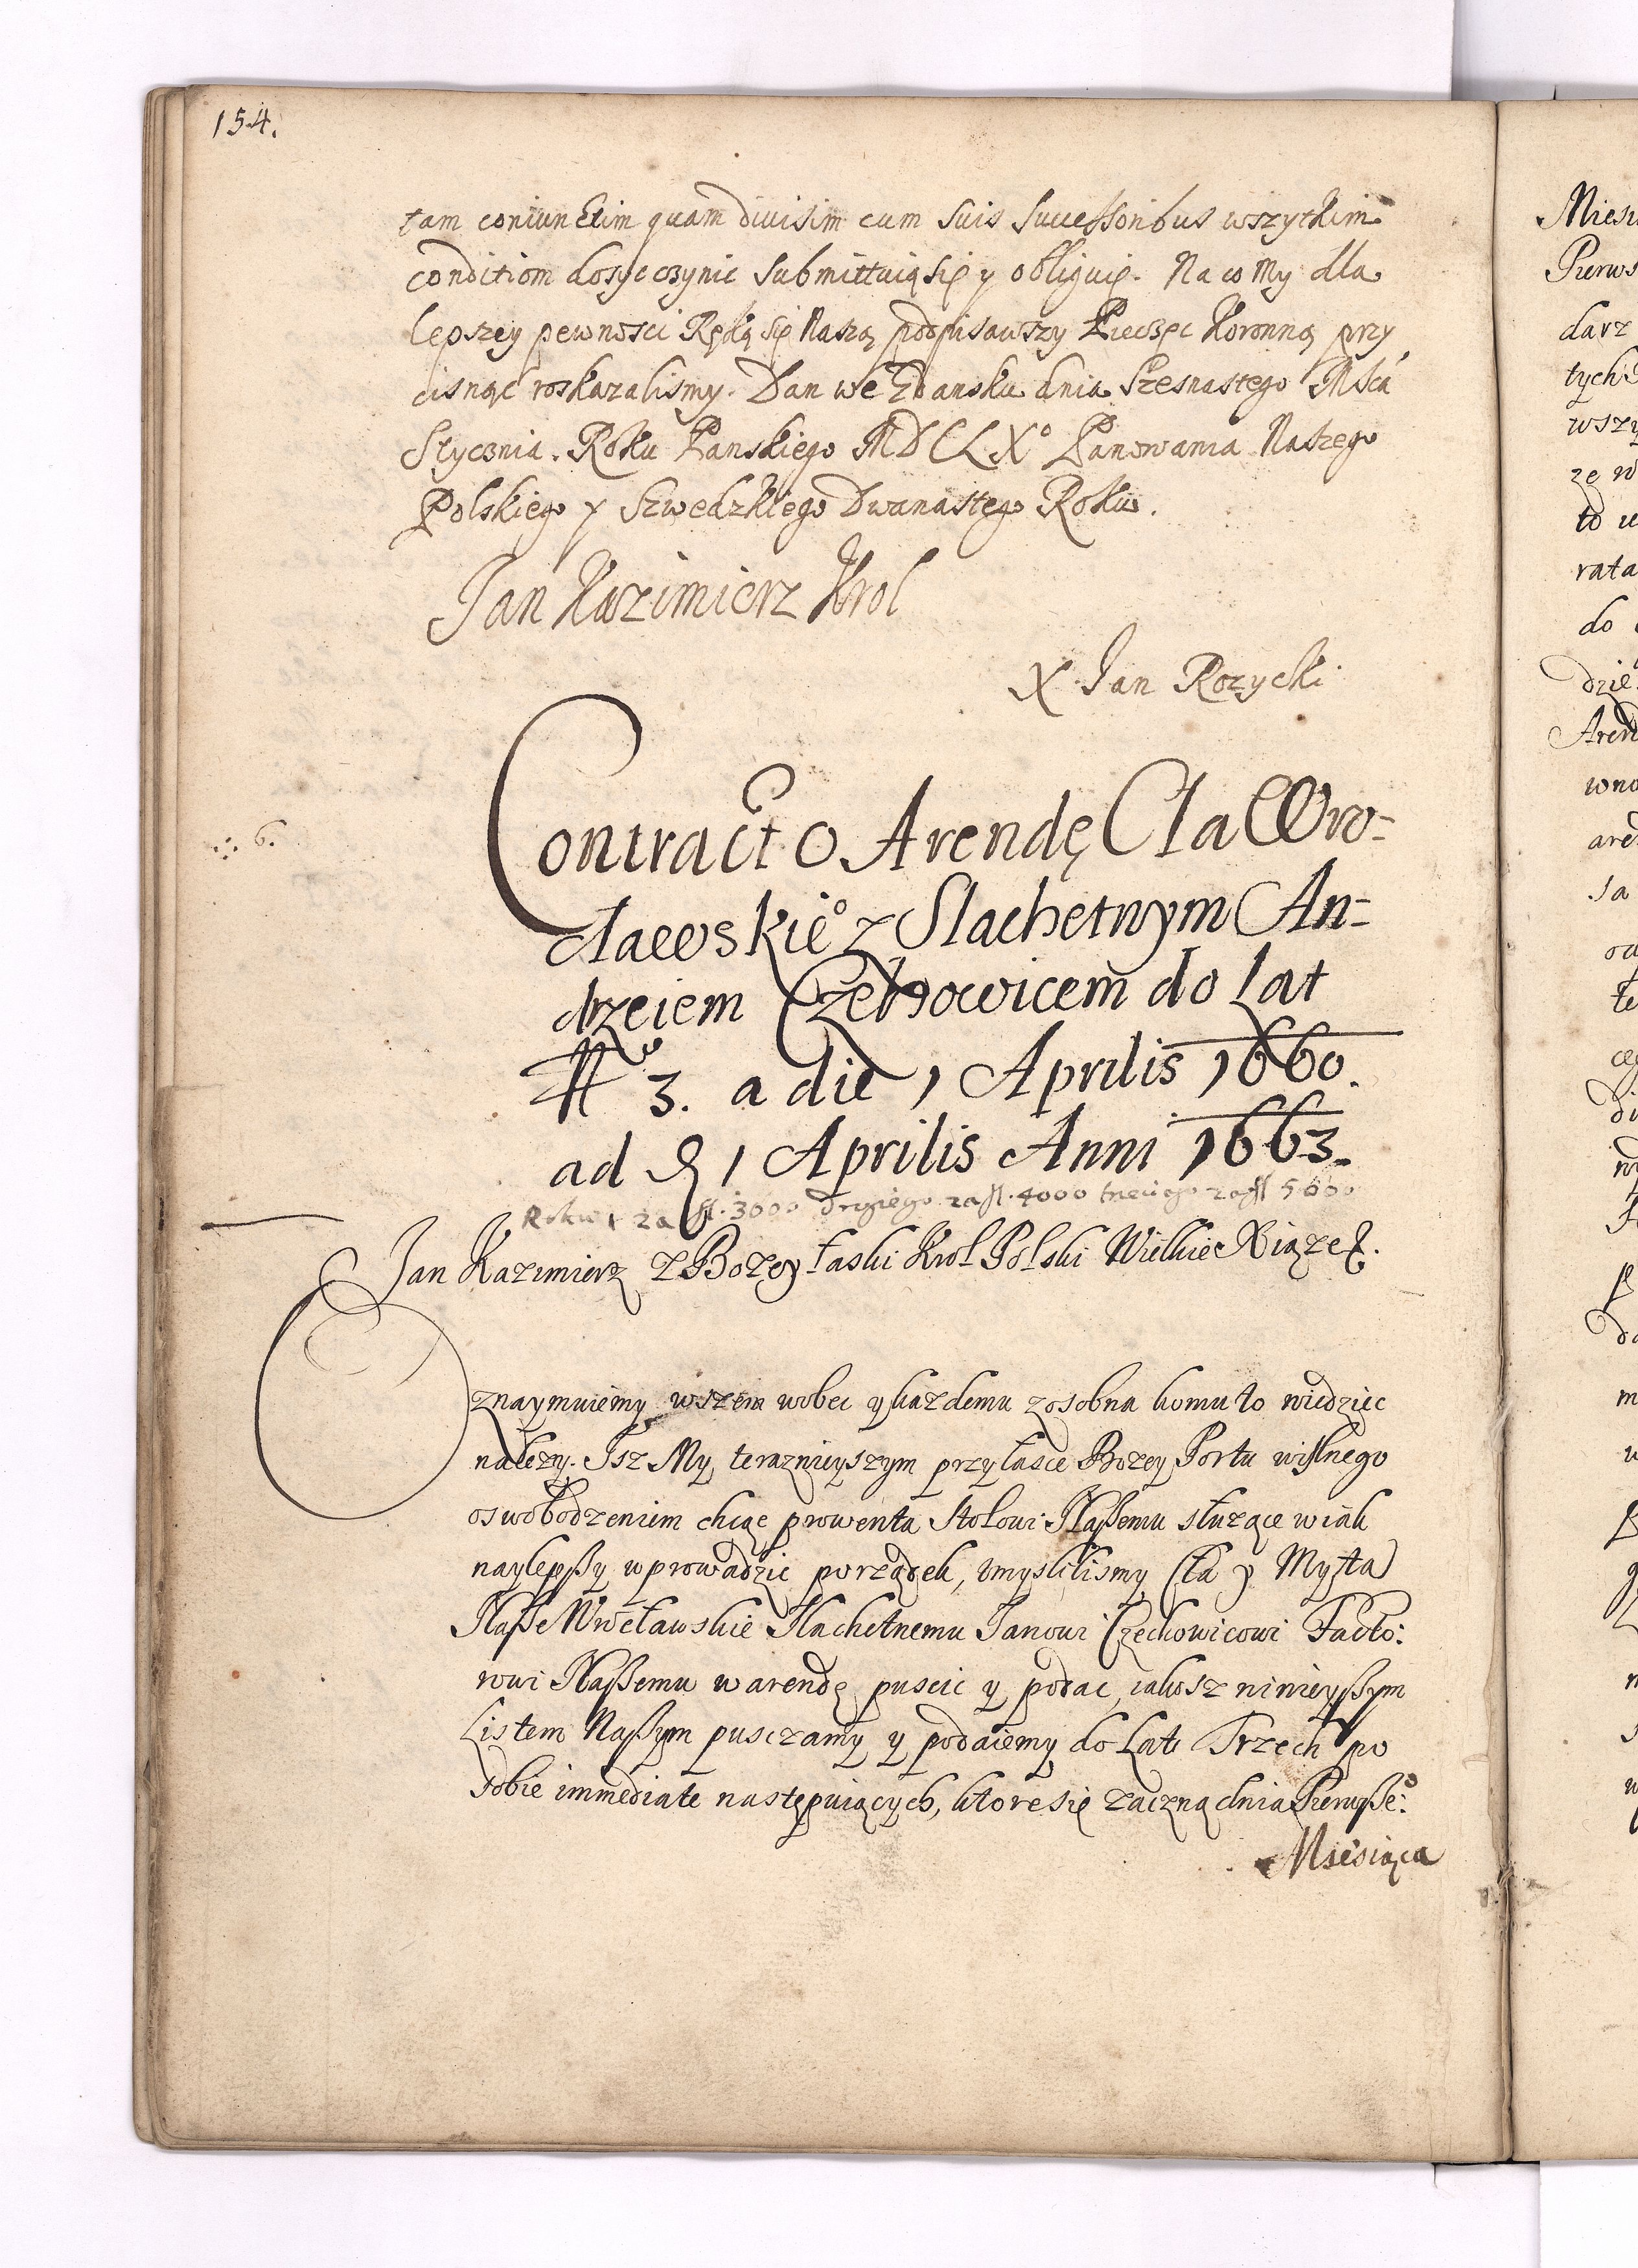 154.
tam coniunctim quam diuisim cum suis successoribus wszytkim
conditiom dosyc czynic submittuią się y obliguię. Na co My dla
lepszey pewnosci Ręką się Naszą podpisawszy Pieczęc Koronną przy
cisnąć roskazalismy. Dan we Gdansku dnia Szesnastego Msca
Stycznia. Roku Panskiego MDCLX° Panowania Naszego
Polskiego y Szwedzkiego Dwanastego Roku.
Jan Kazimierz Krol
X. Jan Rozycki
6.
Contract O Arendę Cła Wro-
cławskie° z Slachetnym An-
drzeiem Czechowicem do Lat
3. a die 1 Aprilis 1660.
ad 1 Aprilis Anni 1663.
Roku 1 za fl. 3000 drugiego za fl. 4000 trzeciego za fl 5000
Jan Kazimierz z Bozey łaski Krol Polski Wielkie Xiąze &.
Oznaymuiemy wszem wobec y kazdemu z osobna komu to wiedziec
nalezy. Isz My teraznieyszym przy łasce Bozey Portu wislnego
oswobodzeniem chcąc prowenta Stołowi Naßemu słuząće w iak
naylepßy wprowadzic porządek, umyslilismy Cła y Myta
Naße Wrocławskie Slachetnemu Janowi Czechowicowi Facto:
rowi Naßemu w arendę puscic y podac, iakosz ninieyßym
Listem Naßym pusczamy y podaiemy do Lat Trzech po
sobie immediate następuiących, ktore się zaczną dnia Pierwße:°
Miesiąca